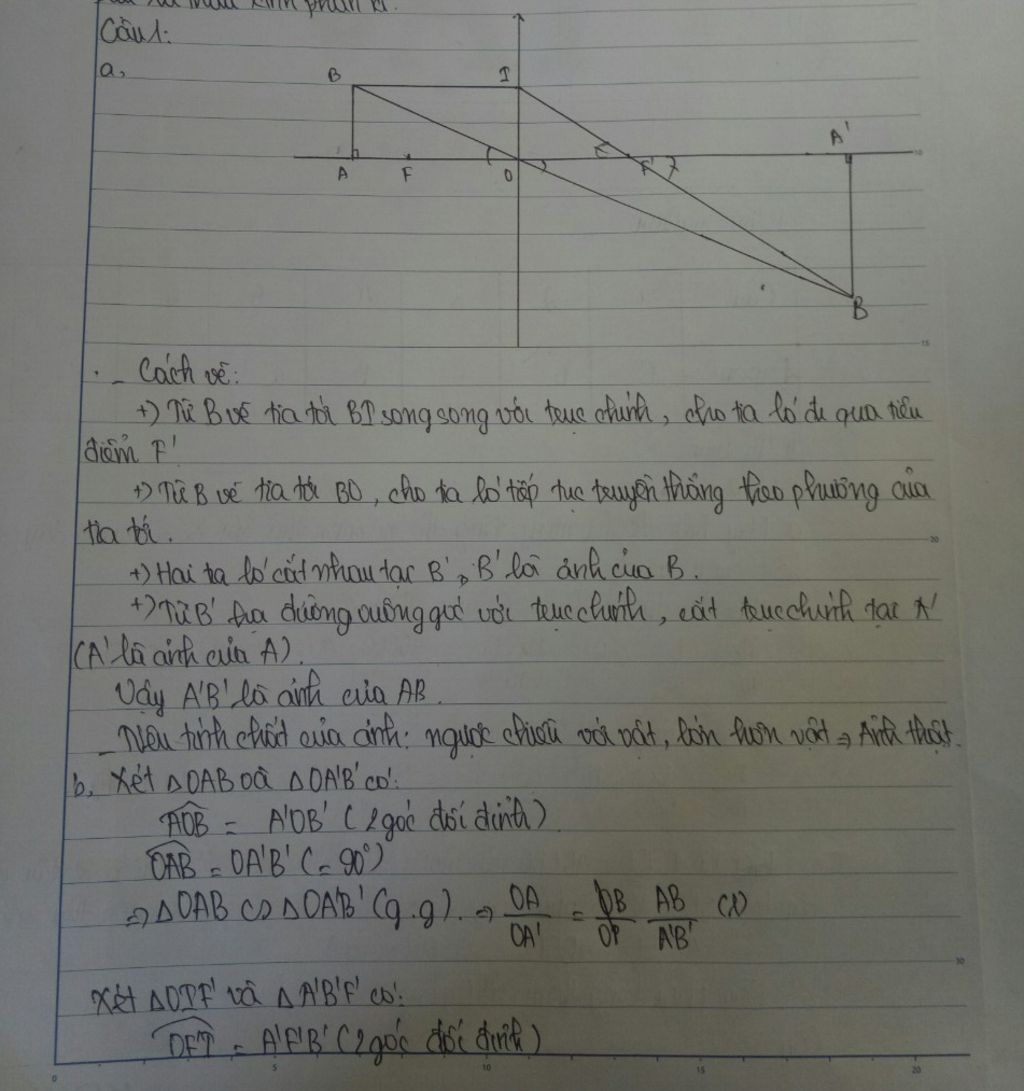 Câu 1:
a,
B I
A'
A F O F'
B
- Cách vẽ:
+) Từ B vẽ tia tới BI song song với trục chính, cho tia ló đi qua tiêu
điểm F'
+) Từ B vẽ tia tới BO, cho tia ló tiếp tục truyền thẳng theo phương của
tia tới.
+) Hai tia ló cắt nhau tại B', B' là ảnh của B.
+) Từ B' hạ đường vuông góc với trục chính, cắt trục chính tại A'
(A' là ảnh của A).
Vậy A'B' là ảnh của AB.
- Nêu tính chất của ảnh: ngược chiều với vật, lớn hơn vật ⇒ Ảnh thật.
b, Xét △OAB và △OA'B' có:
AOB = A'OB' (2 góc đối đỉnh)
OAB = OA'B' (= 90°)
⇒ △OAB ∽ △OA'B' (g.g). ⇒ OA/OA' = AB/A'B' (1)
Xét △OIF' và △A'B'F' có:
OF'I = A'F'B' (2 góc đối đỉnh)